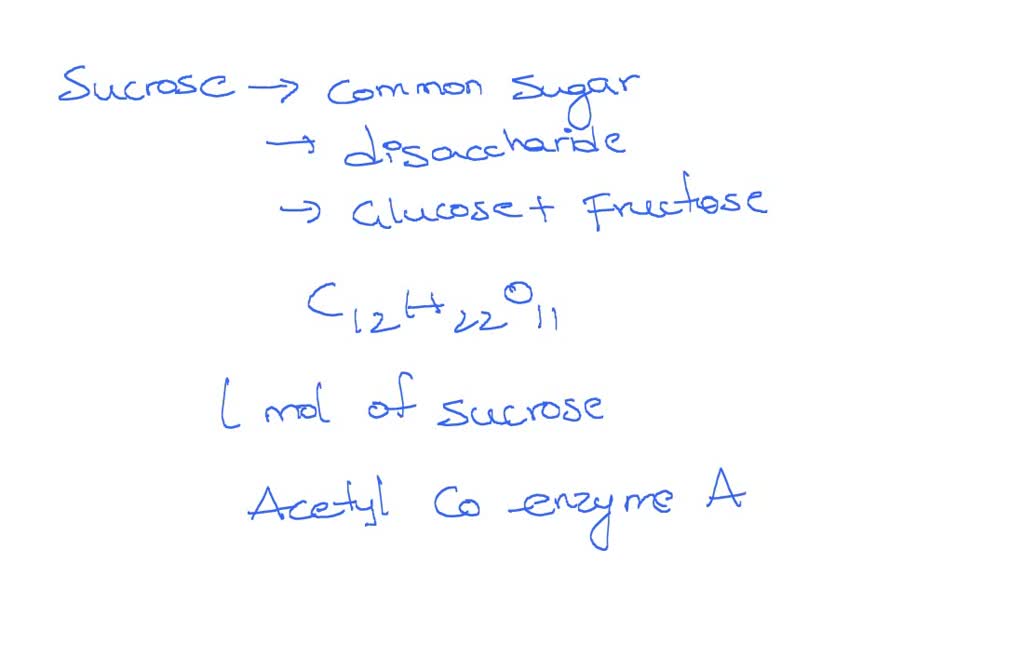 Sucrose → common sugar
→ disaccharide
→ Glucose + Fructose
C₁₂H₂₂O₁₁
1 mol of sucrose
Acetyl Co enzyme A